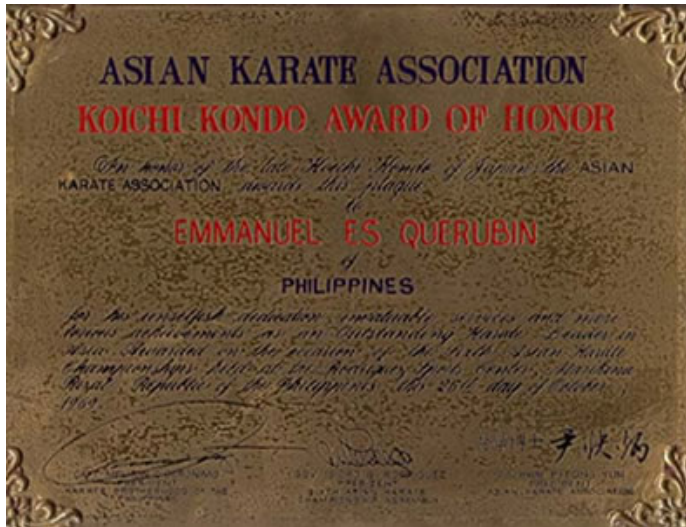 ASIAN KARATE ASSOCIATION
KOICHI KONDO AWARD OF HONOR
In honor of the late Koichi Kondo of Japan, the ASIAN
KARATE ASSOCIATION awards this plaque
to
EMMANUEL ES QUERUBIN
of
PHILIPPINES
for his unselfish dedication, invaluable services and meri-
torious achievements as an Outstanding Karate Leader in
Asia. Awarded on the occasion of the Asian Karate
Championships held at the Rodriguez Sports Center, Marikina
Rizal, Republic of the Philippines, this 26th day of October,
1969.
PRESIDENT
KARATE BROTHERHOOD OF THE
PRESIDENT
ASIAN KARATE
PRESIDENT
ASIAN KARATE ASSOCIATION